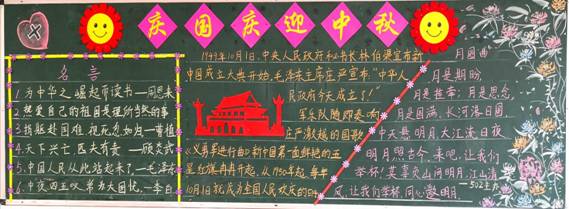 庆国庆迎中秋
名言
1.为中华之崛起而读书—周恩来
2.热爱自己的祖国是理所当然的事
3.捐躯赴国难,视死忽如归—曹植
4.天下兴亡,匹夫有责—顾炎武
5.中国人民从此站起来了—毛泽东
1949年10月1日,中央人民政府秘书长林伯渠宣布新
中国成立大典开始,毛泽东主席庄严宣布:“中华人
民政府今天成立了!”
军乐队随即奏响
庄严激越的国歌
《义勇军进行曲》新中国第一面鲜艳的五
星红旗冉冉升起,从1950年起,每年
10月1日就成为全国人民欢庆的日
月圆曲
月是期盼
月是挂牵;月是思念,
月是圆满,长河落日圆
中天悬明月,大江流日夜
明月照古今,来吧,让我们
举杯!莫辜负山间明月,江山清
风,让我们举杯,同心邀明月.